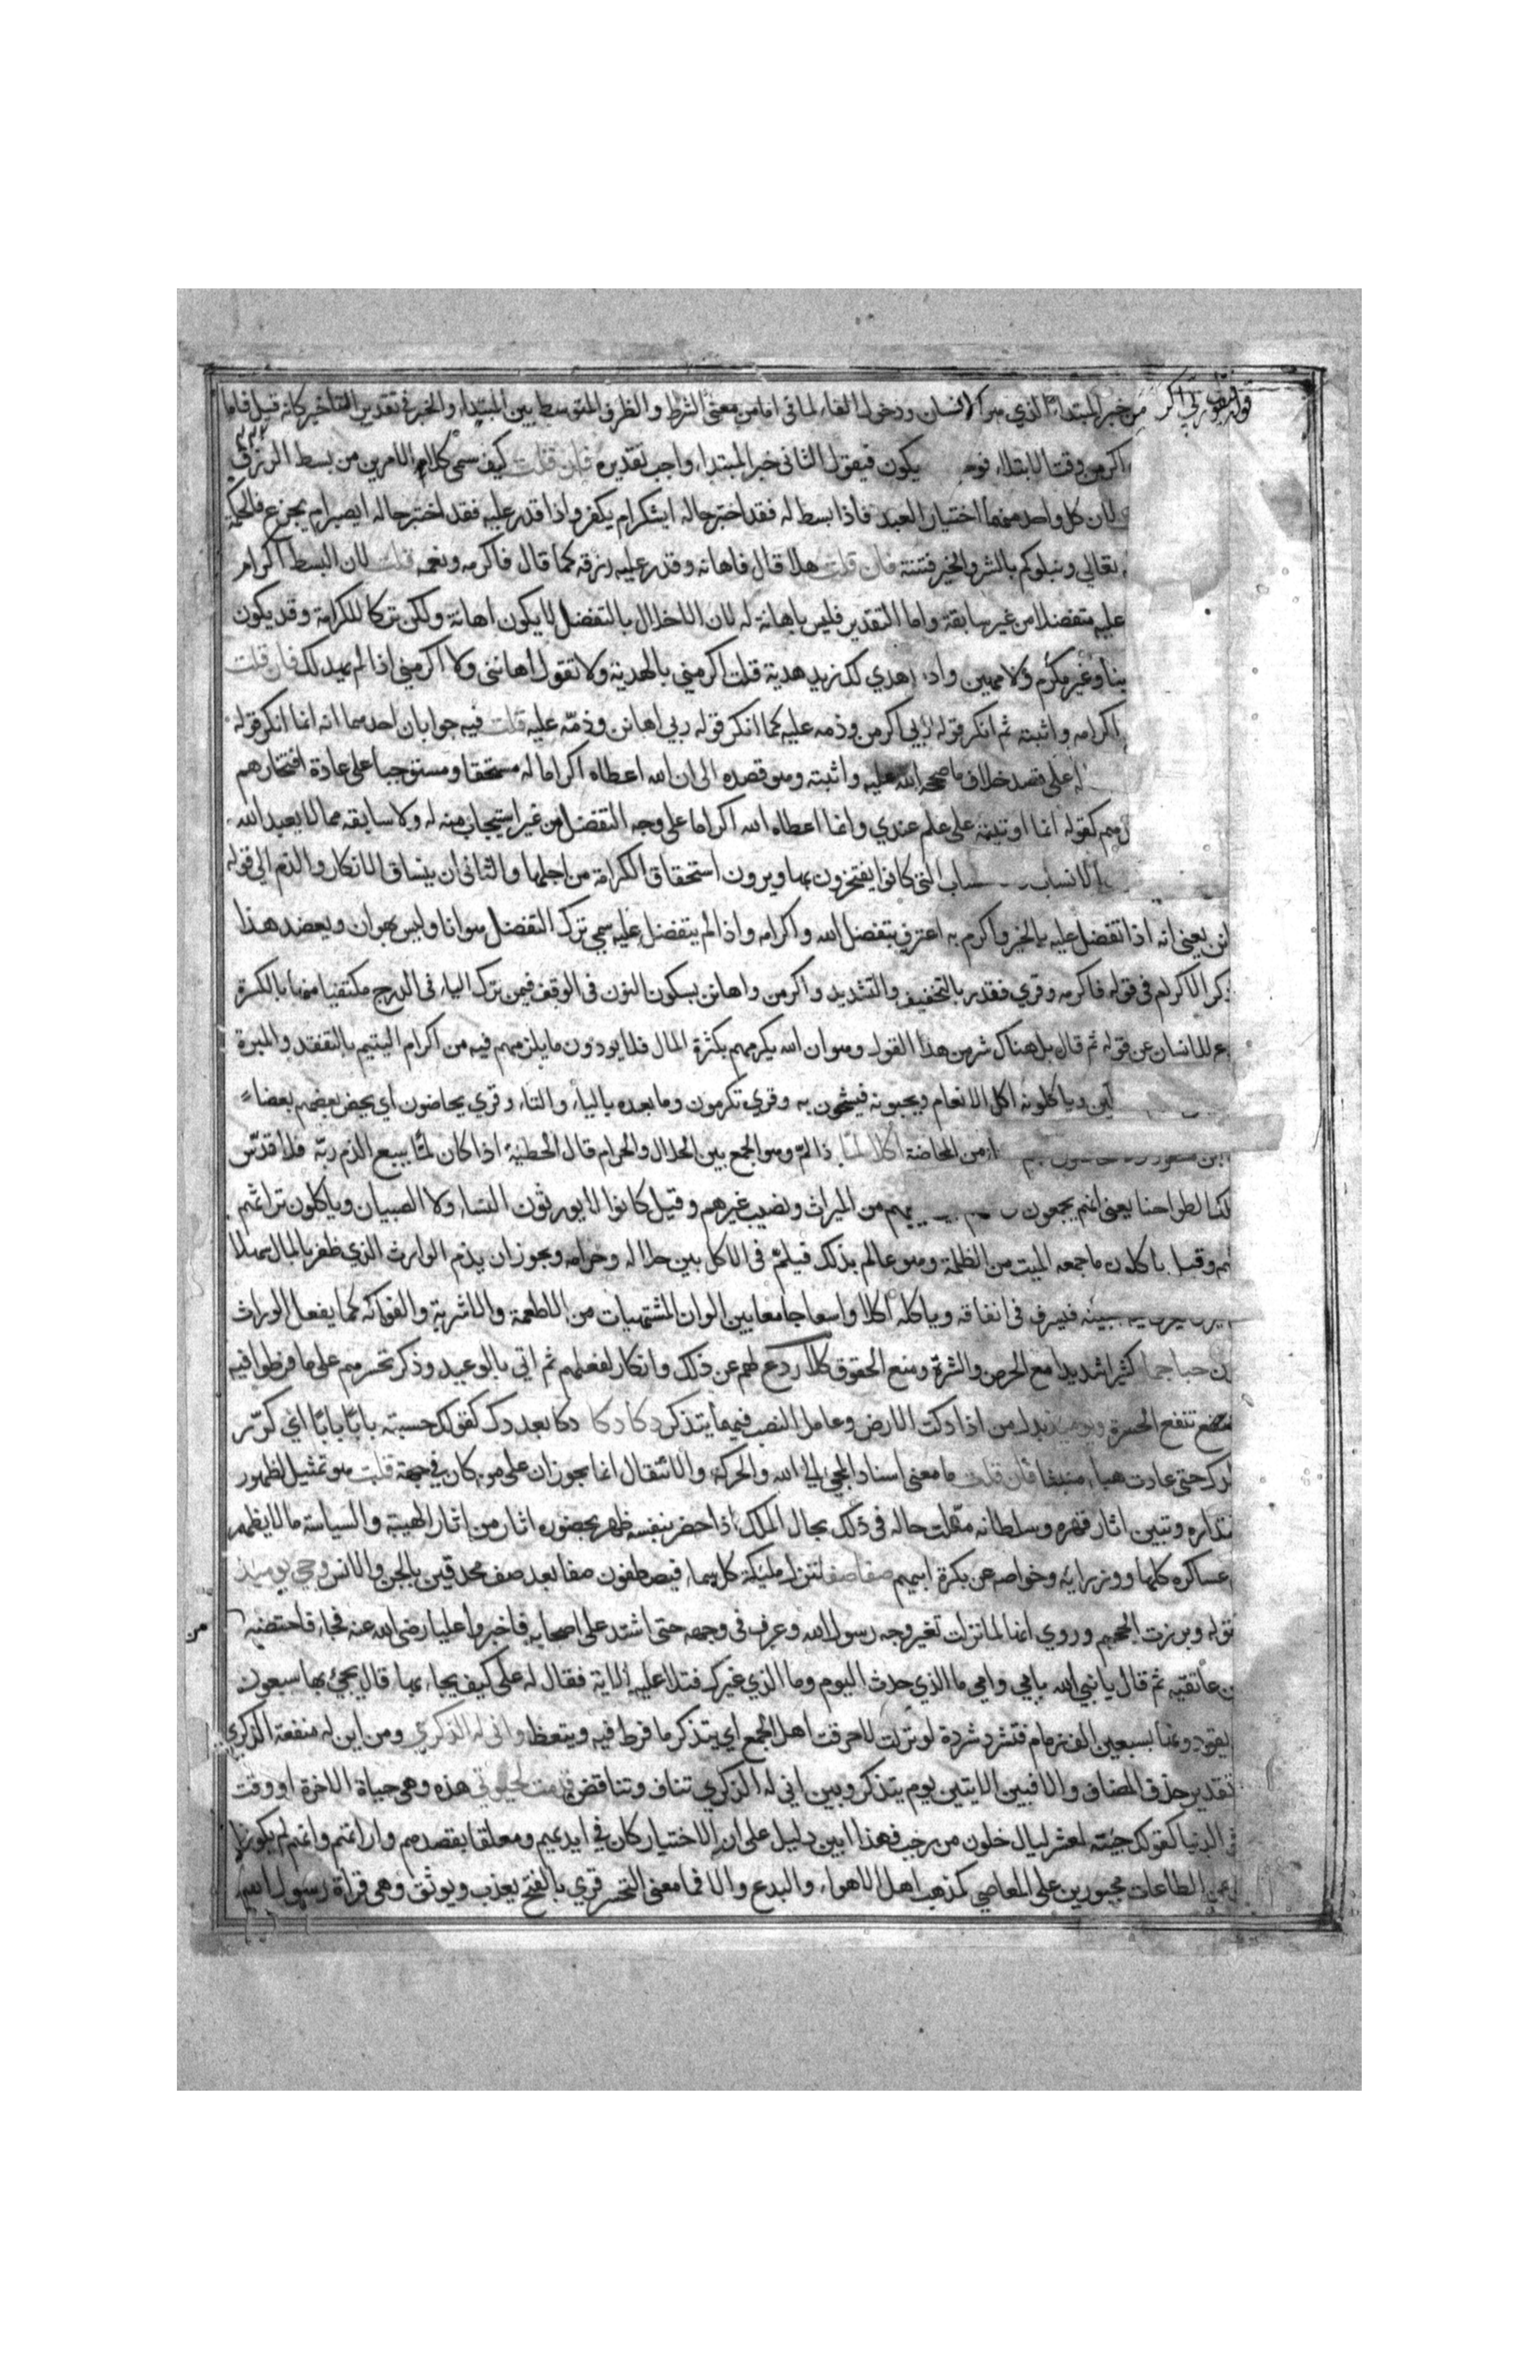 قوله فيقول ربي اكرمن خبر المبتدا الذي هو الانسان ودخول الفاء لما في اما من معنى الشرط والظرف المتوسط بين المبتدا والخبر في تقدير التاخير كانه قيل فاما
اكرمن وقت الابتلا فوجب يكون فيقول الثاني خبر المبتدا واجب تقديره فان قلت كيف سمى كلا الامرين من بسط الرزق
لان كل واحد منهما اختبار للعبد فاذا بسط له فقد اختبر حاله ايشكر ام يكفر واذا قدر عليه فقد اختبر حاله ايصبر ام يجزع فالحكمة
تعالى ونبلوكم بالشر والخير فتنة فان قلت هلا قال فاهانه وقدر عليه رزقه كما قال فاكرمه ونعمه قلت لان البسط اكرام
عليه متفضلا من غير سابقة واما التقدير فليس باهانة له لان الاخلال بالتفضل لا يكون اهانة ولكن تركا للكرامة وقد يكون
وغير مكرم ولا مهين واذا اهدي لك زيد هدية قلت اكرمني بالهدية ولا تقول اهانني ولا اكرمني اذا لم يهد لك فان قلت
اكرامه واثبته ثم انكر قوله ربي اكرمن وذمه عليه كما انكر قوله ربي اهانن وذمّه عليه قلت فيه جوابان احدهما انه انما انكر قوله
له على قصد خلاف ما صححه الله عليه واثبته وهو قصده الى ان الله اعطاه اكراما له مستحقا ومستوجبا على عادة افتخارهم
كقوله انما اوتيته على علم عندي وانما اعطاه الله اكراما على وجه التفضل من غير استيجاب منه له ولا سابقه مما لا يعبد الله
الانساب التي كانوا يفتخرون بها ويرون استحقاق الكرامة من اجلها والثاني ان ينساق الانكار والذم الى قوله
يعني انه اذا تفضل عليه بالخير واكرم به اعترف بتفضل الله واكرامه واذا لم يتفضل عليه سمى ترك التفضل هوانا وليس بهوان ويعضد هذا
ذكر الاكرام في قوله فاكرمه وقري فقدر بالتخفيف والتشديد واكرمن واهانن بسكون النون في الوقف فيمن ترك الياء في الدرج مكتفيا منها بالكسرة
للانسان عن قوله ثم قال بل هناك شر من هذا القول وهو ان الله يكرمهم بكثرة المال فلا يودون ما يلزمهم فيه من اكرام اليتيم بالتفقد والمبرة
وياكلونه اكل الانعام ويحبونه فيشحون به وقري تكرمون وما بعده بالياء والتاء وقري يحاضون اي يحض بعضهم بعضا
من المحاضة اكلا لمّا ذا لمّ وهو الجمع بين الحلال والحرام قال الحطيئة اذا كان لمّا يتبع الذم ربّه فلا قدّس
الطواحنا يعني انهم يجمعون من الميراث ونصيب غيرهم وقيل كانوا لا يورثون النساء ولا الصبيان وياكلون تراثهم
وقيل ياكلون ما جمعه الميت من الظلمة وهو عالم بذلك فيلمّ في الاكل بين حلاله وحرامه ويجوز ان يذم الوارث الذي ظفر بالمال سهلا
فيسرف في انفاقه وياكله اكلا واسعا جامعا بين الوان المشتهيات من الاطعمة والاشربة والفواكه كما يفعل الوراث
حبا جما كثيرا شديدا مع الحرص والشرة ومنع الحقوق كلا ردع لهم عن ذلك وانكار لفعلهم ثم اتى بالوعيد وذكر تحسرهم على ما فرطوا فيه
تنفع الحسرة ويوميذ بدل من اذا دكت الارض وعامل النصب فيهما يتذكر دكا دكا دكا بعد دك كقولك حسبته بابًا بابًا اي كرّر
حتى عادت هباء منبثا فان قلت ما معنى اسناد المجي الى الله والحركة والانتقال انما يجوزان على من كان في جهة قلت هو تمثيل لظهور
اقتداره وتبين اثار قهره وسلطانه مثلت حاله في ذلك بحال الملك اذا حضر بنفسه ظهر بحضوره اثار من اثار الهيبة والسياسة ما لا يظهر
عساكره كلها ووزرايه وخواصه عن بكرة ابيهم صفا صفا تنزل مليكة كل سماء فيصطفون صفا بعد صف محدقين بالجن والانس وجي يوميذ
قوله وبرزت الجحيم وروي انها لما نزلت تغير وجه رسول الله وعرف في وجهه حتى اشتد على اصحابه فاخبروا عليا رضي الله عنه فجاء فاحتضنه من
عاتقيه ثم قال يا نبي الله بابي وامي ما الذي حدث اليوم وما الذي غيرك فتلا عليه الاية فقال له علي كيف يجاء بها قال يجيء بها سبعون
يقودونها بسبعين الف زمام فتشرد شردة لو تركت لاحرقت اهل الجمع اي يتذكر ما فرط فيه ويتعظ وانى له الذكري ومن اين له منفعة الذكري
تقدير حذف المضاف والا فبين الايتين يوم يتذكر وبين انى له الذكري تناف وتناقض قدمت لحيوتي هذه وهي حياة الاخرة او وقت
في الدنيا كقولك جيته لعشر ليال خلون من رجب فهذا ابين دليل على ان الاختيار كان في ايديهم ومعلقا بقصدهم وارادتهم وانهم لم يكونوا
عن الطاعات مجبورين على المعاصي كمذهب اهل الاهواء والبدع والا فما معنى التحسر قري بالفتح يعذب ويوثق وهي قراة رسول الله